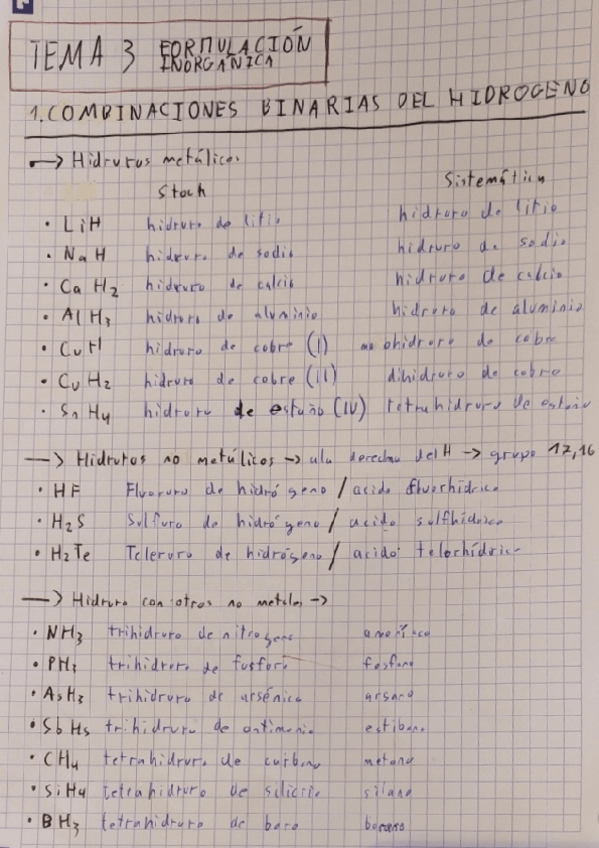 TEMA 3 FORMULACIÓN INORGÁNICA
1. COMBINACIONES BINARIAS DEL HIDROGENO
—> Hidruros metálicos
Stock Sistemática
• LiH hidruro de litio hidruro de litio
• NaH hidruro de sodio hidruro de sodio
• CaH2 hidruro de calcio hidruro de calcio
• AlH3 hidruro de aluminio hidruro de aluminio
• CuH hidruro de cobre (I) monohidruro de cobre
• CuH2 hidruro de cobre (II) dihidruro de cobre
• SnH4 hidruro de estaño (IV) tetrahidruro de estaño
—> Hidruros no metálicos -> a la derecha del H -> grupo 17,16
• HF Fluoruro de hidrógeno / acido fluorhídrico
• H2S Sulfuro de hidrógeno / acido sulfhídrico
• H2Te Teleruro de hidrógeno / acido telorhídrico
—> Hidruro con otros no metales ->
• NH3 trihidruro de nitrogeno amoníaco
• PH3 trihidruro de fosforo fosfano
• AsH3 trihidruro de arsénico arsano
• SbH3 trihidruro de antimonio estibano
• CH4 tetrahidruro de carbono metano
• SiH4 tetrahidruro de silicio silano
• BH3 tetrahidruro de boro borano